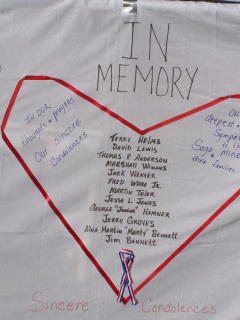 IN
MEMORY
In our
thoughts & prayers
Our sincere
Condolences
Our
deepest
Sympa
to th
Sago mine
their families
Terry Helms
David Lewis
Thomas P. Anderson
Marshall Winans
Jack Weaver
Fred Ware Jr.
Martin Toler
Jesse L. Jones
George "Junior" Hamner
Jerry Groves
Alva Martin "Marty" Bennett
Jim Bennett
Sincere Condolences